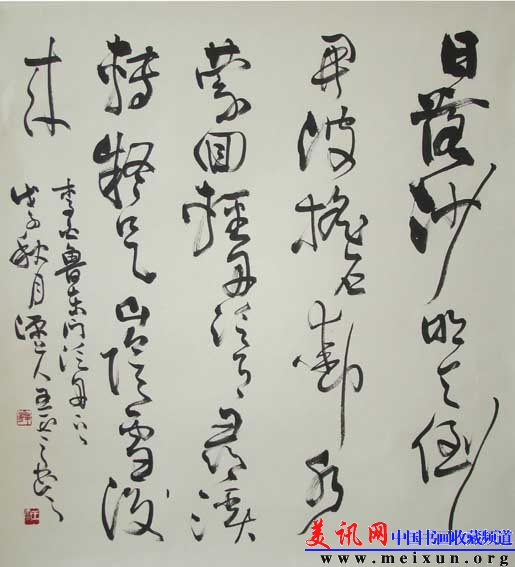 日落沙明天倒
開波摇石動水
縈回輕舟泛月尋溪
轉疑是山陰雪後
来
李白魯東門泛舟
戊子秋月
美讯网 中国书画收藏频道
www.meixun.org